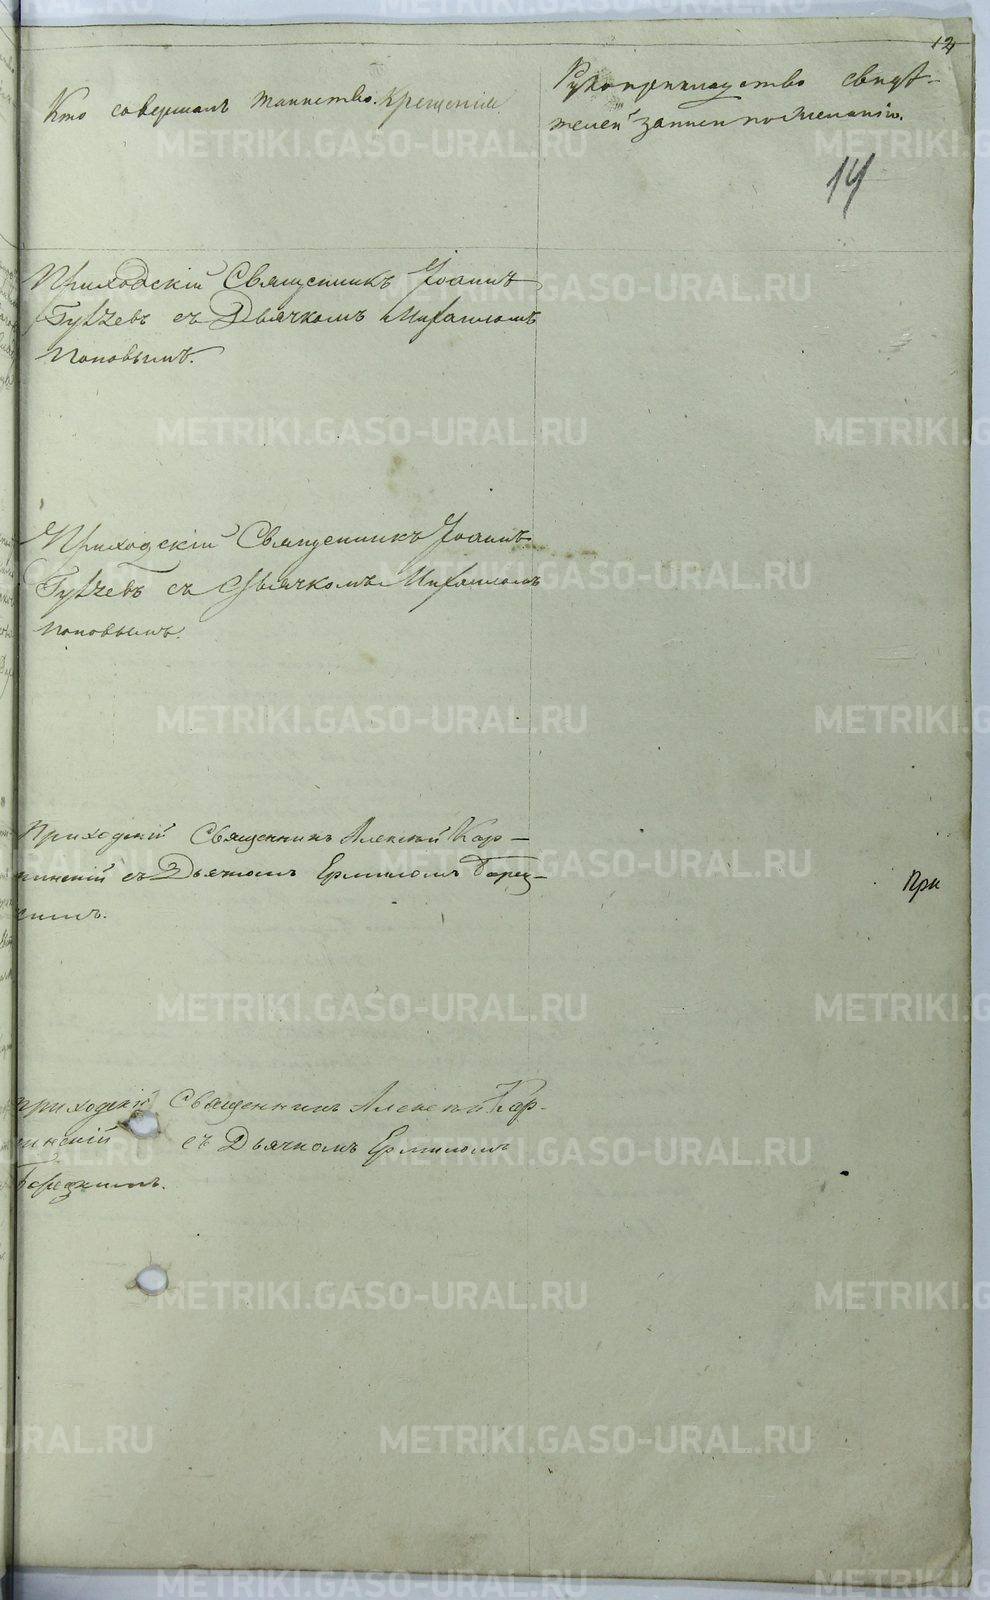 12
Кто совершалъ таинство крещенія
Рукоприкладство свидѣ-
телей записи по желанію.
14
Приходскій Священникъ Іоаннъ
съ Дьячкомъ Михаиломъ
Поповымъ.
Приходскій Священникъ Іоаннъ
съ Дьячкомъ Михаиломъ
Поповымъ.
Приходскій Священникъ Алексѣй Кар-
пинскій съ Дьячкомъ Ермиломъ
При
Приходскій Священникъ Алексѣй Кар-
пинскій съ Дьячкомъ Ермиломъ
METRIKI.GASO-URAL.RU